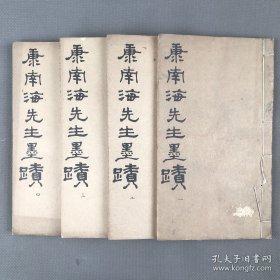 康南海先生墨蹟 一
康南海先生墨蹟 二
康南海先生墨蹟 三
康南海先生墨蹟 四
孔夫子旧书网